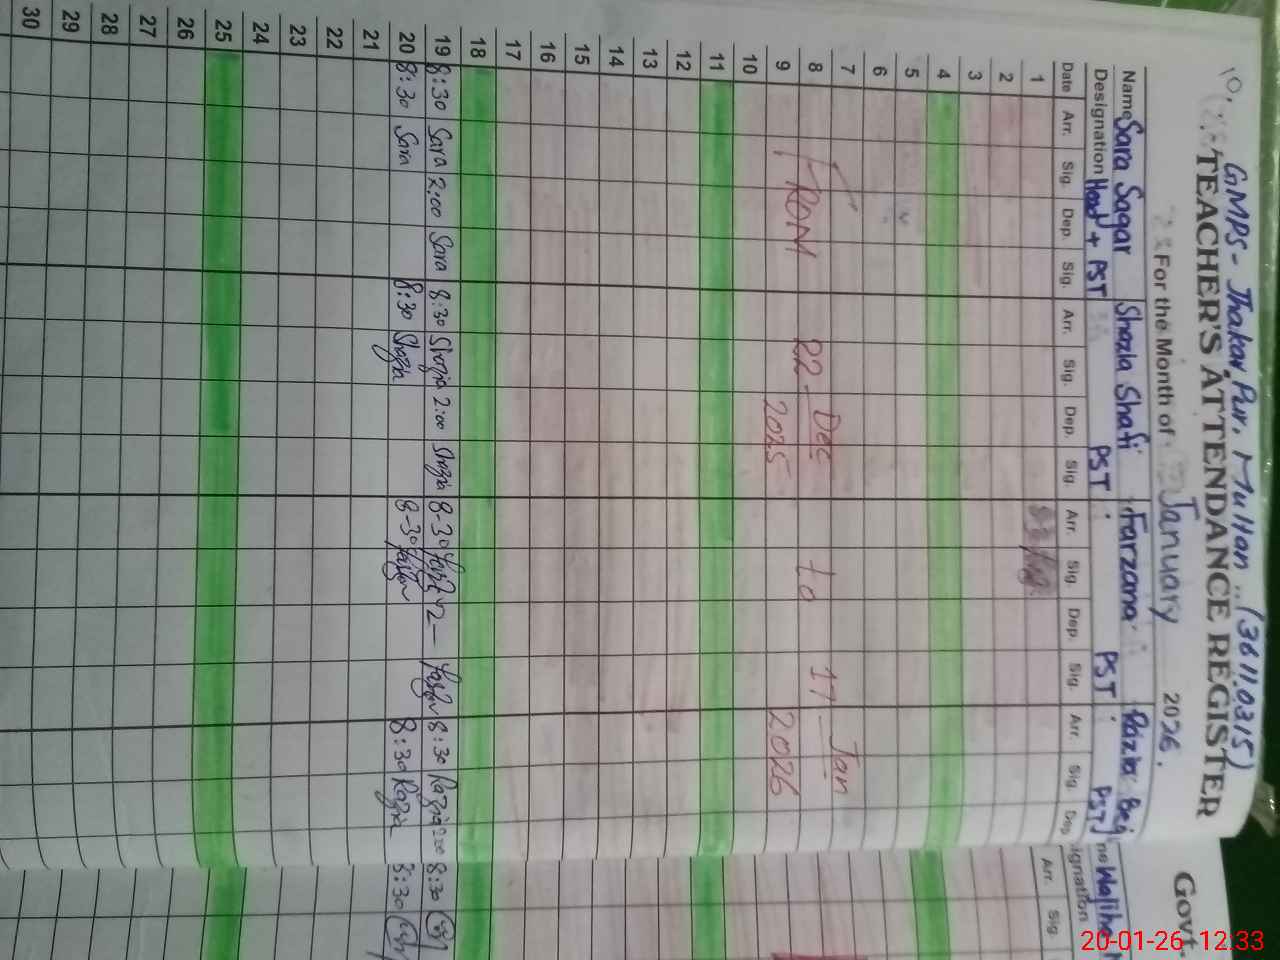 GMPS- Thakar Pur, Multan .. (36110315)
TEACHER'S ATTENDANCE REGISTER
For the Month of January 2026.
Govt
Name Sara Sagar Shazla Shafi Farzana Razia
Designation Head + PST PST PST PST
Date Arr. Sig. Dep. Sig. Arr. Sig. Dep. Sig. Arr. Sig. Dep. Sig. Arr. Sig. Dep. Arr. Sig.
1
2
3
4
5
6
7
8
9
10
FROM 22 - Dec 2025 to 17 - Jan 2026
11
12
13
14
15
16
17
18
19 8:30 Sara 2:00 Sara 8:30 Shazia 2:00 Shazia 8-30 2- 8:30 Razia 8:30
20 8:30 Sara 8:30 Shazia 8-30 8:30 Razia 8:30
21
22
23
24
25
26
27
28
29
30
20-01-26 12:33